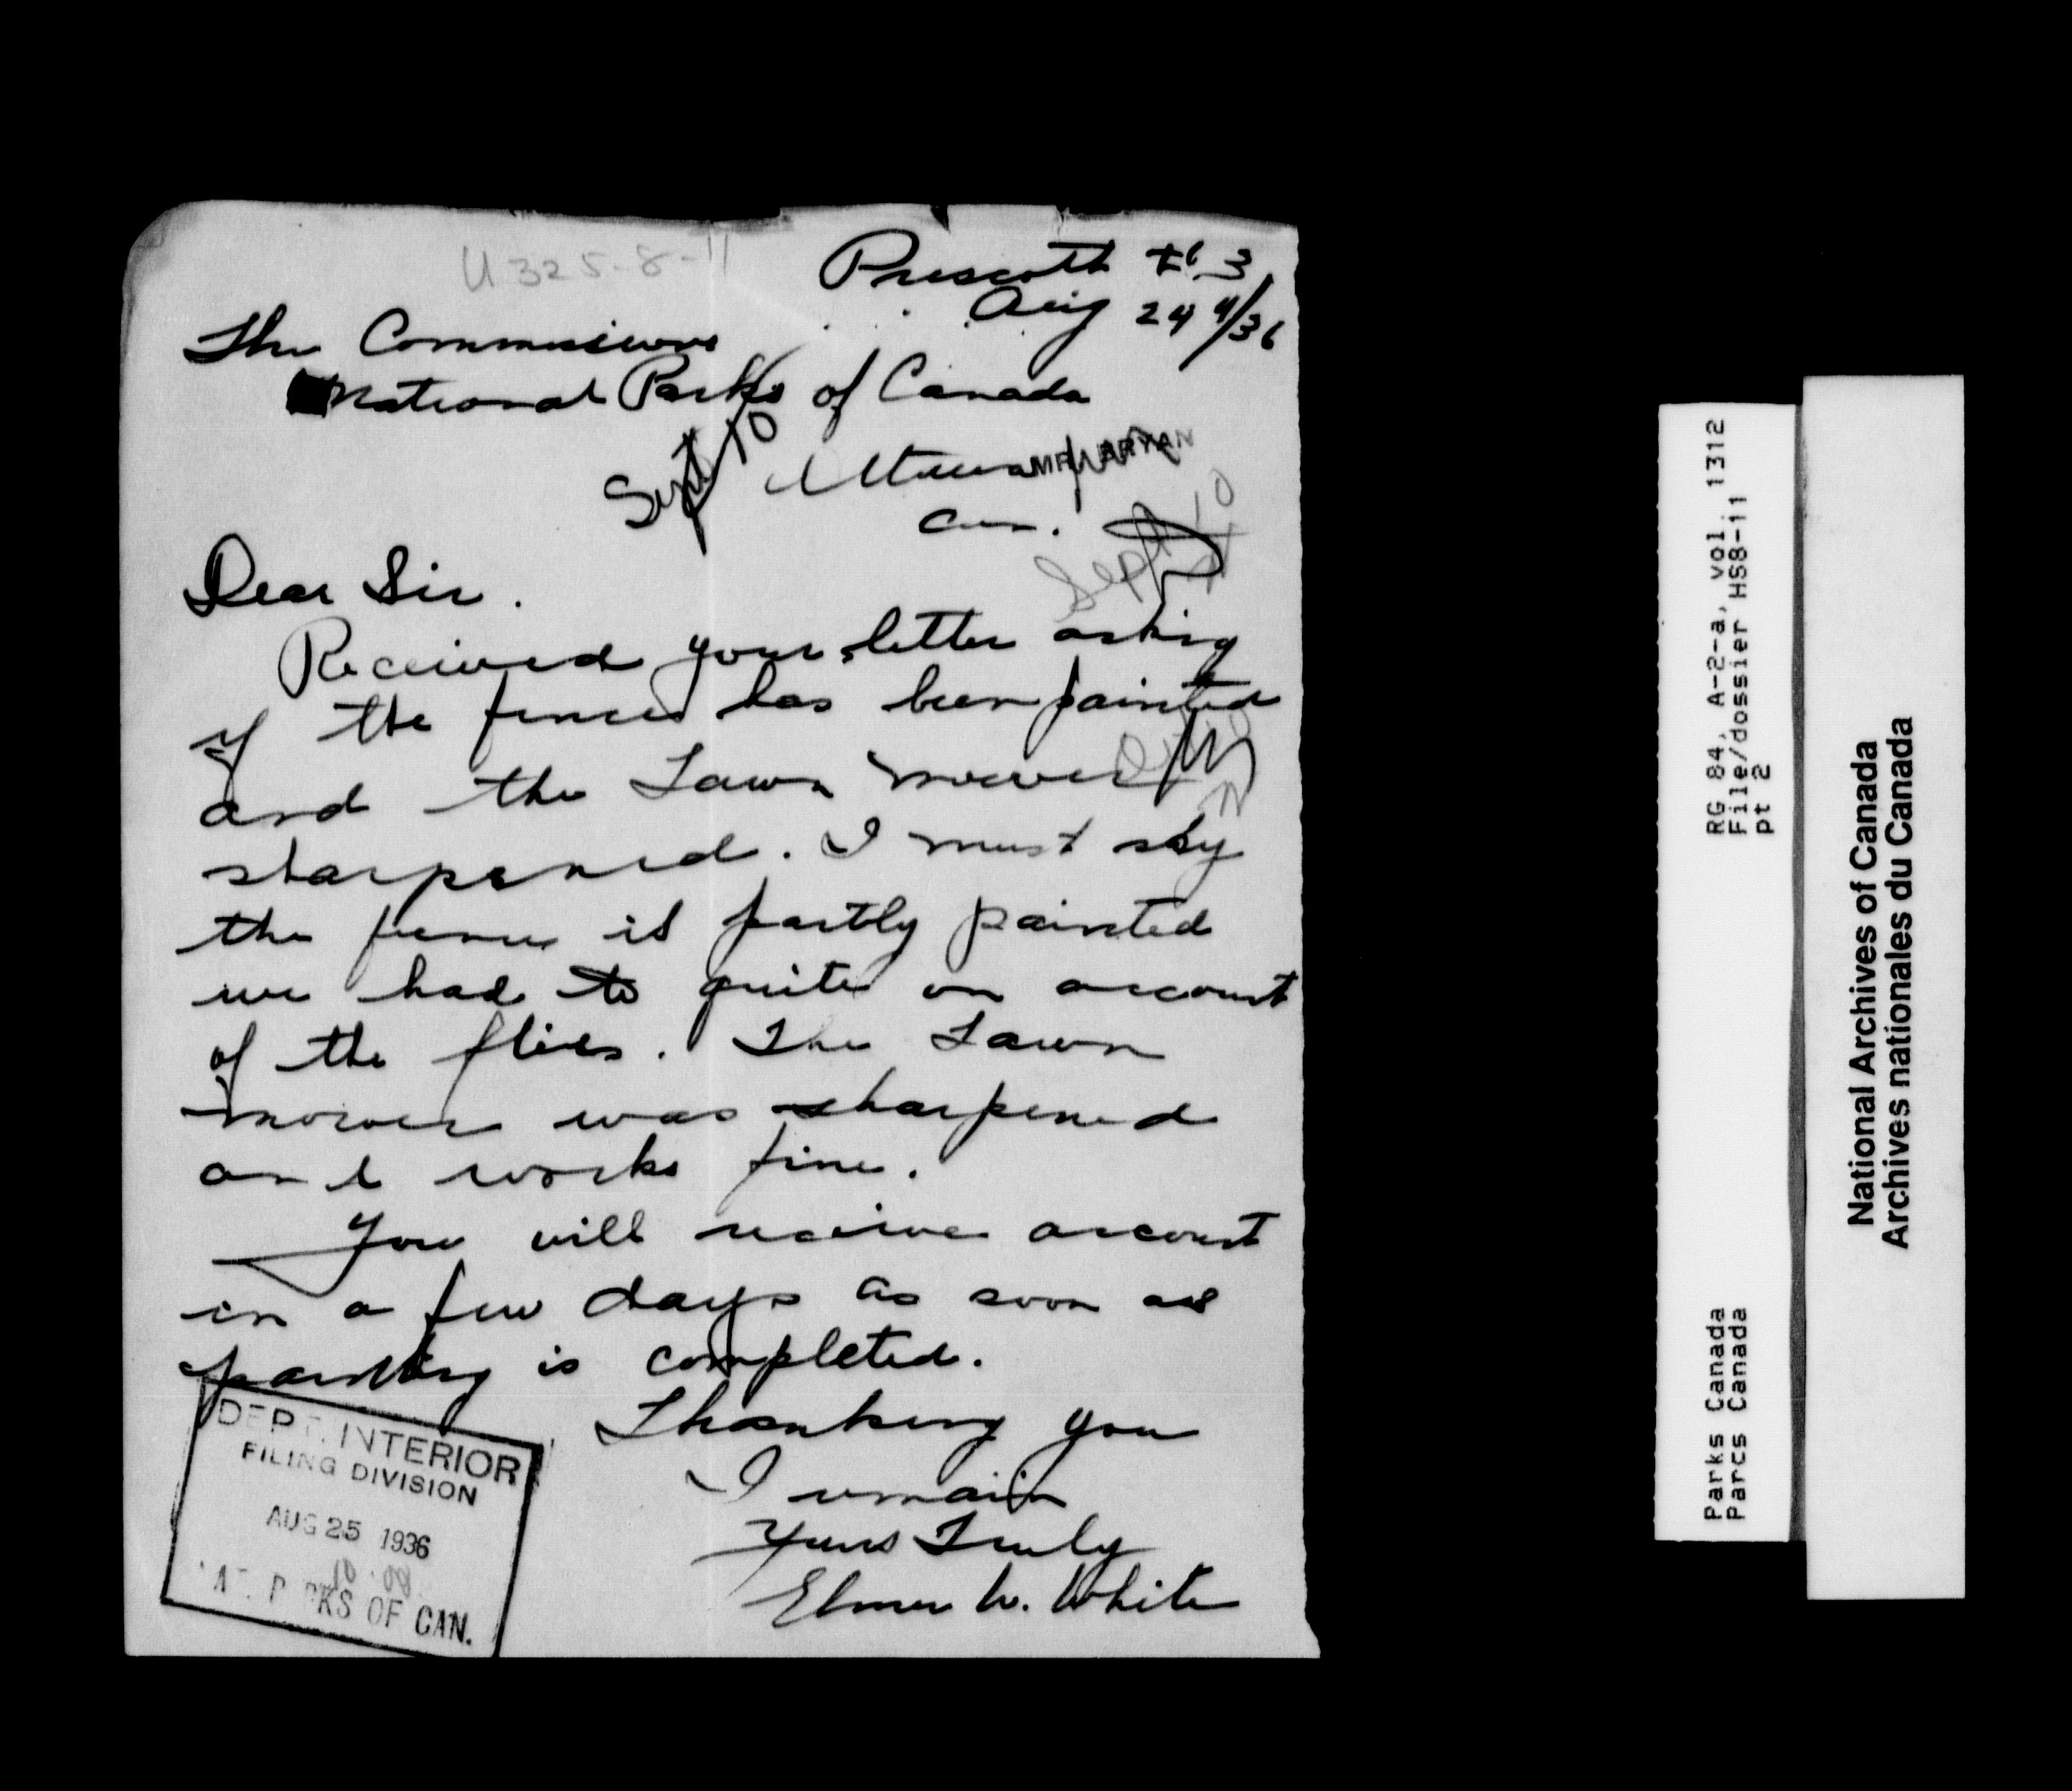 U325-8-11
Prescott #3
Aug 24 4/36
The Commissioner
National Parks of Canada
Ottawa
Can.
Sept 10
Sept 10
Dear Sir.
Received your letter asking
if the fence has been painted
and the Lawn mower
sharpened. I must say
the fence is partly painted
we had to quite on account
of the flies. The Lawn
mower was sharpened
and works fine.
You will receive account
in a few days as soon as
painting is completed.
Thanking you
I remain
Yours Truly
Elmer W. White
DEPT. INTERIOR
FILING DIVISION
AUG 25 1936
NAT. PARKS OF CAN.
RG 84, A-2-a, vol. 1312
File/dossier HS8-11
pt 2
Parks Canada
Parcs Canada
National Archives of Canada
Archives nationales du Canada